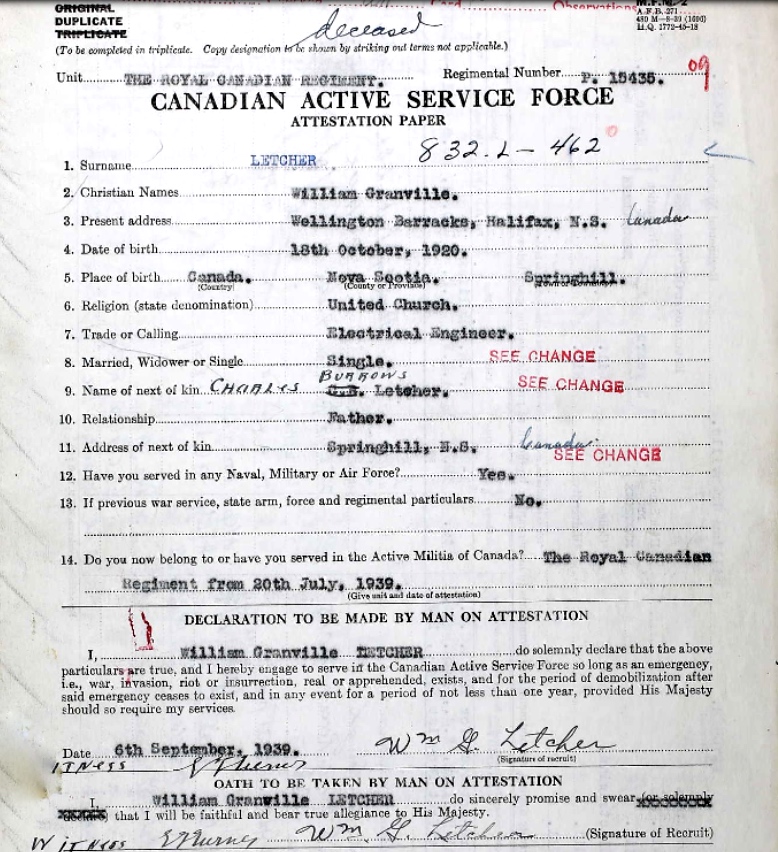 Observations
ORIGINAL
DUPLICATE
TRIPLICATE
deceased
M.F.M. 2
A.F.B. 271
H.Q. 1772-45-18
(To be completed in triplicate. Copy designation to be shown by striking out terms not applicable.)
Unit THE ROYAL CANADIAN REGIMENT. Regimental Number P. 15435. 09
CANADIAN ACTIVE SERVICE FORCE
ATTESTATION PAPER
832.L-462
1. Surname LETCHER
2. Christian Names William Granville.
3. Present address Wellington Barracks, Halifax, N.S. Canada
4. Date of birth 18th October, 1920.
5. Place of birth Canada. Nova Scotia. Springhill.
(Country) (County or Province)
6. Religion (state denomination) United Church.
7. Trade or Calling Electrical Engineer.
8. Married, Widower or Single Single. SEE CHANGE
BURROWS
9. Name of next of kin CHARLES C.B. Letcher. SEE CHANGE
10. Relationship Father.
11. Address of next of kin Springhill, N.S. Canada.
SEE CHANGE
12. Have you served in any Naval, Military or Air Force? Yes.
13. If previous war service, state arm, force and regimental particulars No.
14. Do you now belong to or have you served in the Active Militia of Canada? The Royal Canadian
Regiment from 20th July, 1939.
(Give unit and date of attestation)
DECLARATION TO BE MADE BY MAN ON ATTESTATION
I, William Granville LETCHER do solemnly declare that the above
particulars are true, and I hereby engage to serve in the Canadian Active Service Force so long as an emergency,
i.e., war, invasion, riot or insurrection, real or apprehended, exists, and for the period of demobilization after
said emergency ceases to exist, and in any event for a period of not less than one year, provided His Majesty
should so require my services.
Date 6th September, 1939. Wm G. Letcher
(Signature of recruit)
ITNESS
OATH TO BE TAKEN BY MAN ON ATTESTATION
I, William Granville LETCHER do sincerely promise and swear (or solemnly
declare) that I will be faithful and bear true allegiance to His Majesty.
WITNESS Wm G. Letcher (Signature of Recruit)